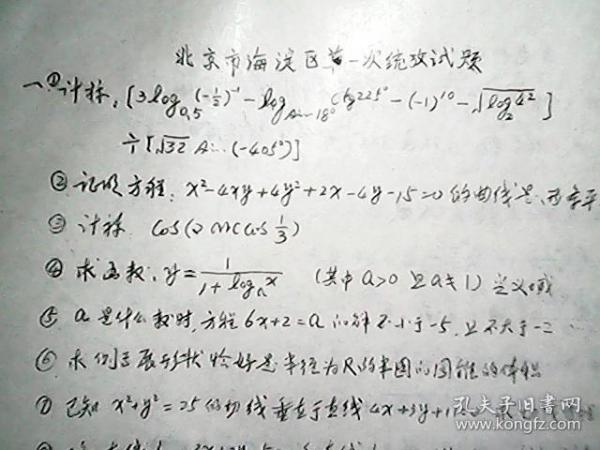 北京市海淀区第一次统考试题
一、①计祘:[3log₀.₅(-½)⁻¹ - log ctg225° - (-1)¹⁰ - √log₂4²]
÷[√32 (-405°)]
②证明方程:x²-4xy+4y²+2x-4y-15=0的曲线是两条平
③计祘 cos(2arccos 1/3)
④求函数:y=1/(1+logₐx) (其中a>0且a≠1)定义域
⑤a是什么数时,方程6x+2=a的解不小于-5,且不大于-2
⑥求侧面展开形状恰好是半径为R的半圆的圆锥的体积
⑦已知x²+y²=25的切线垂直于直线4x+3y+1=0
孔夫子旧书网
www.kongfz.com